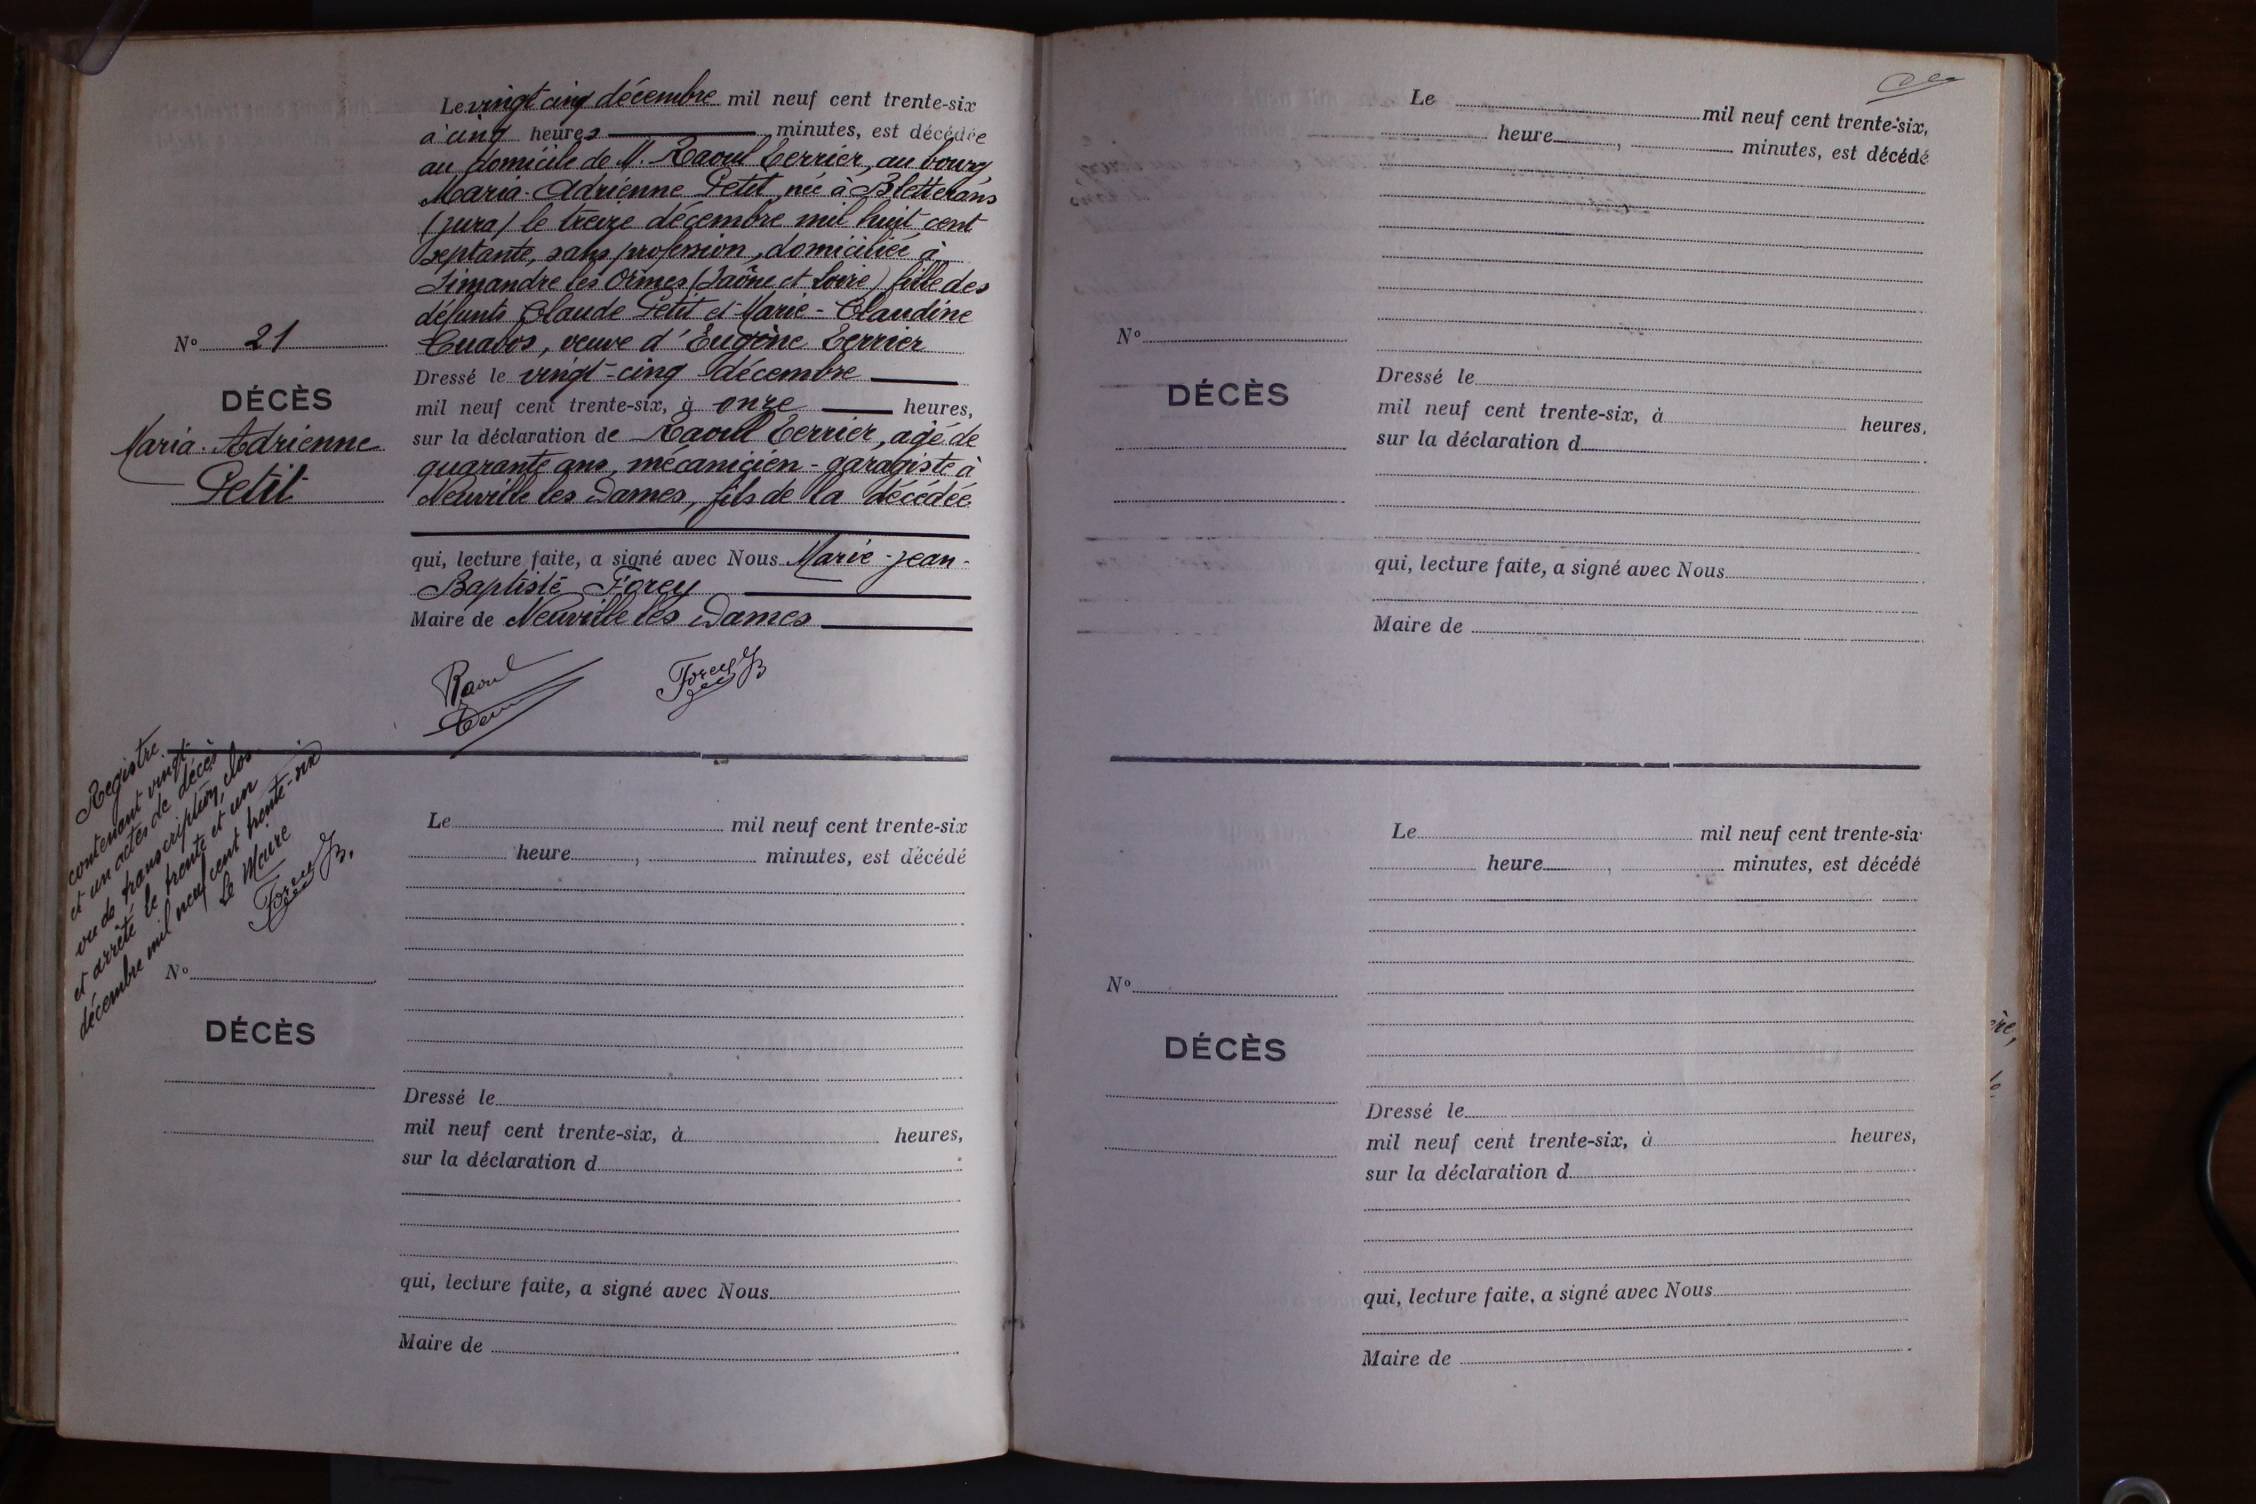 Le vingt cinq décembre mil neuf cent trente-six
à cinq heures minutes, est décédée
au domicile de M. Raoul Terrier, au bourg,
Maria-Adrienne Petit née à Bletterans
(Jura) le treize décembre mil huit cent
septante, sans profession, domiciliée à
Simandre les Ormes (Saône et Loire) fille des
défunts Claude Petit et Marie-Claudine
veuve d'Eugène Terrier
Dressé le vingt-cinq décembre
mil neuf cent trente-six, à onze heures,
sur la déclaration de Raoul Terrier, agé de
quarante ans, mécanicien-garagiste à
Neuville les Dames, fils de la décédée
qui, lecture faite, a signé avec Nous Marie-Jean-
Baptiste Forey
Maire de Neuville les Dames
Raoul
Terrier
Forey JB
N° 21
DÉCÈS
Maria-Adrienne
Petit
Registre
contenant vingt
et un actes de décès
vu de transcription, clos
et arrêté le trente et un
décembre mil neuf cent trente-six
Le Maire
Forey JB.
Le mil neuf cent trente-six
heure , minutes, est décédé
N°
DÉCÈS
Dressé le
mil neuf cent trente-six, à heures,
sur la déclaration d
qui, lecture faite, a signé avec Nous
Maire de
Le mil neuf cent trente-six,
heure , minutes, est décédé
N°
DÉCÈS
Dressé le
mil neuf cent trente-six, à heures,
sur la déclaration d
qui, lecture faite, a signé avec Nous
Maire de
Le mil neuf cent trente-six
heure , minutes, est décédé
N°
DÉCÈS
Dressé le
mil neuf cent trente-six, à heures,
sur la déclaration d
qui, lecture faite, a signé avec Nous
Maire de